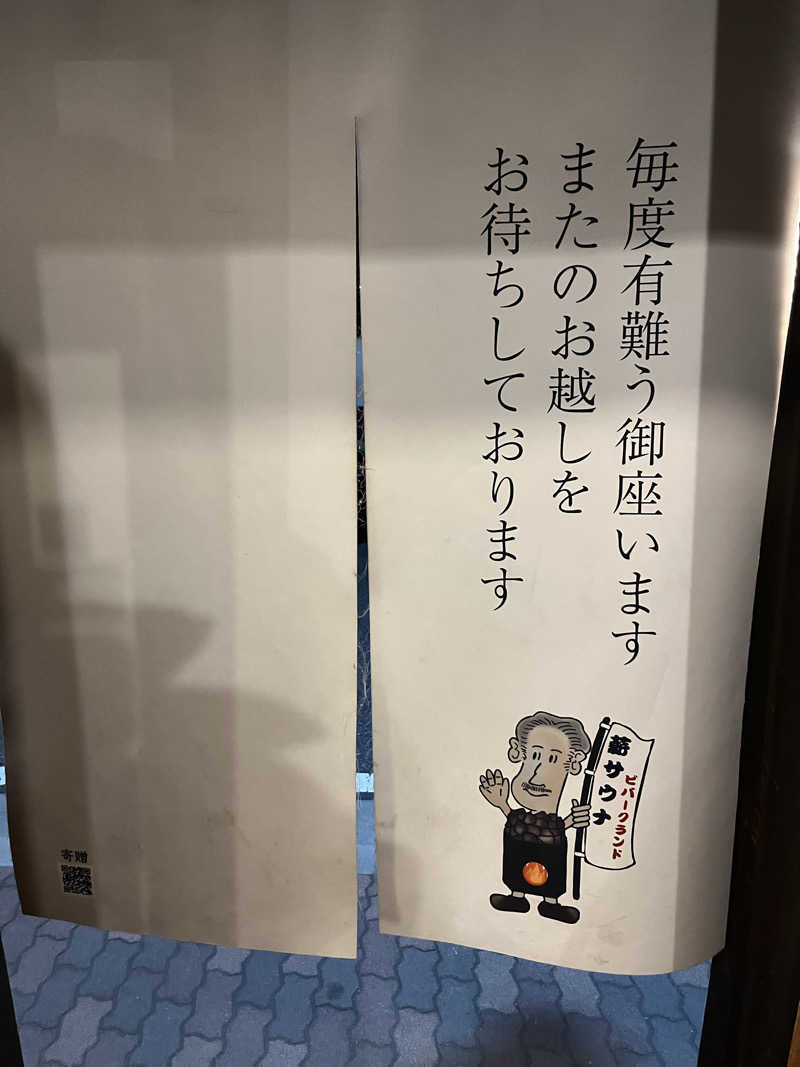 毎度有難う御座います
またのお越しを
お待ちしております
薪サウナ
ビバークランド
寄贈